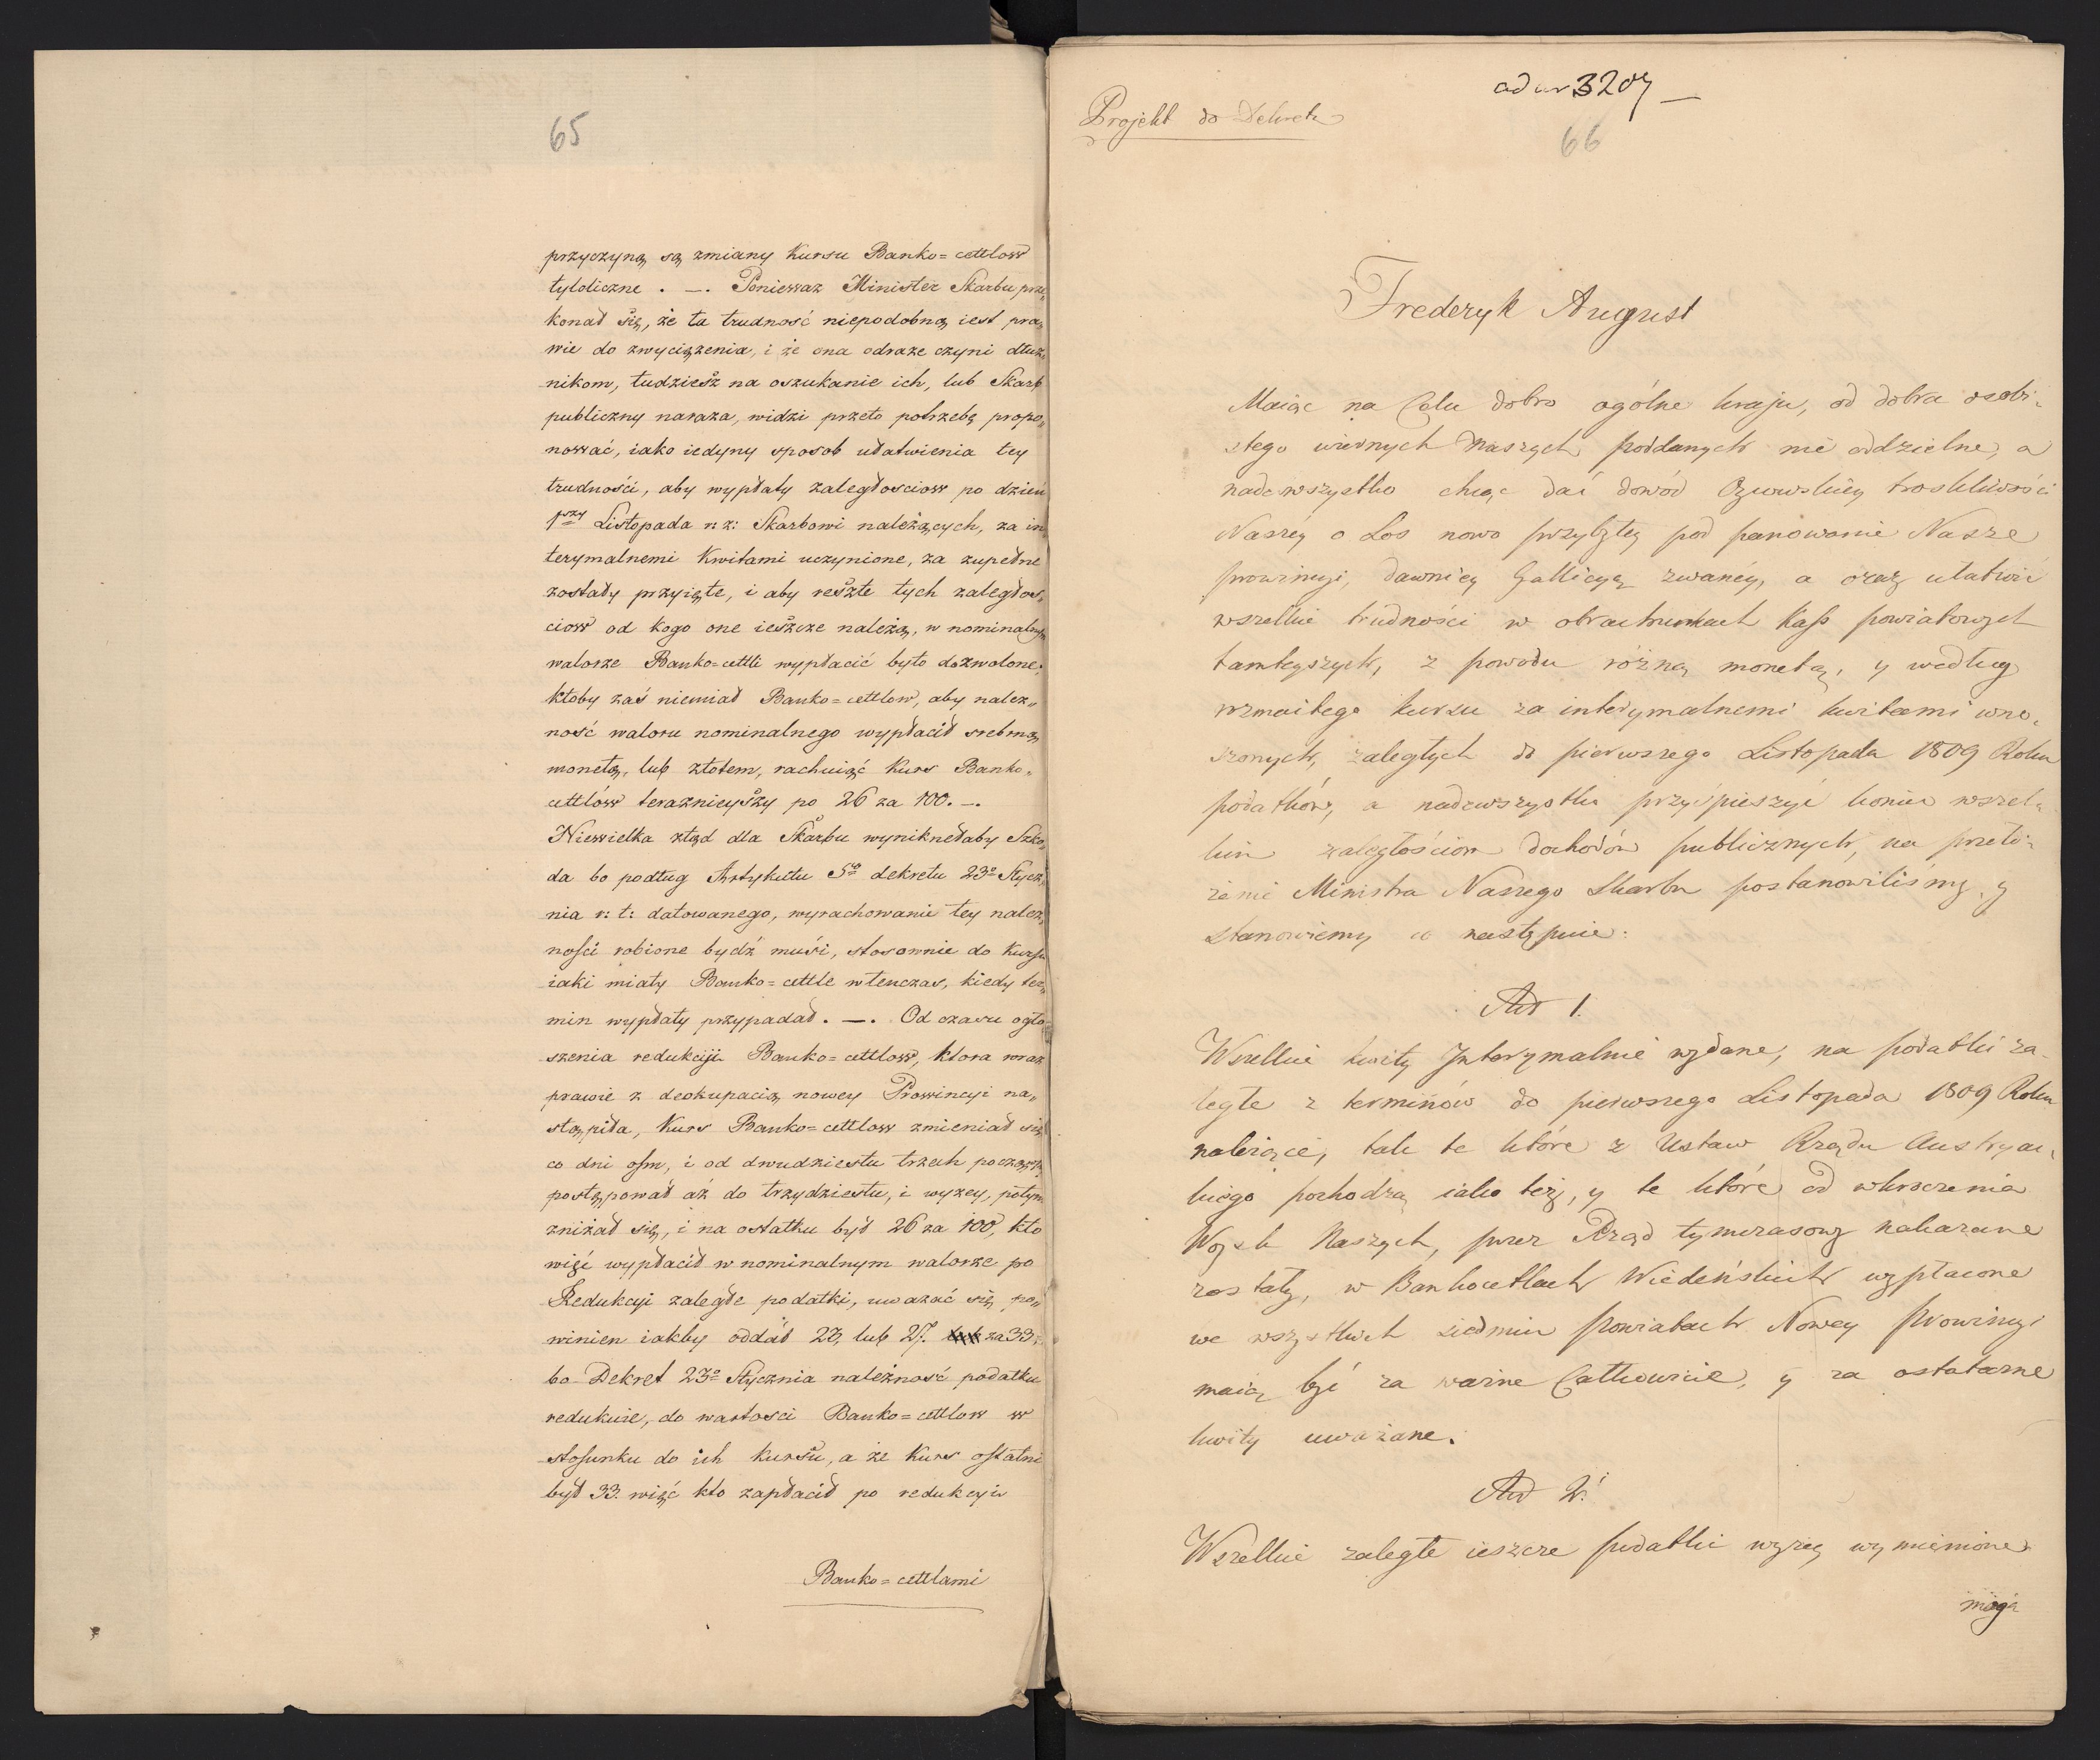 65
przyczyną są zmiany Kursu Banko=cettlow
tyloliczne . —. Ponieważ Minister Skarbu prze„
konał się, że ta trudność niepodobną iest pra„
wie do zwyciężenia, i że ona odraze czyni dłuż„
nikom, tudziesz na oszukanie ich, lub Skarb
publiczny naraża, widzi przeto potrzebę propo„
nować, iako iedyny sposob ułatwienia tey
trudności, aby wypłaty zaległosciow po dzień
1szy Listopada r: z: Skarbowi należących, za in„
terymalnemi Kwitami uczynione, za zupełne
zostały przyięte, i aby reszte tych zaległos„
ciow od kogo one ieszcze należą, w nominalnym
walorze Banko=cettli wypłacić było dozwolone;
ktoby zaś niemiał Banko=cettlow, aby należ„
ność waloru nominalnego wypłacił srebrną
monetą, lub złotem, rachuiąć Kurs Banko„
cettlów teraznieyszy po 26 za 100. —.
Niewielka ztąd dla Skarbu wyniknełaby Szko„
da bo podług Artykułu 5go dekretu 23o Stycz„
nia r: t: datowanego, wyrachowanie tey należ„
ności robione bydź musi, stosownie do Kursu
iaki miały Banko=cettle wtenczas, kiedy ter„
min wypłaty przypadał. —. Od czasu ogło„
szenia redukcyi Banko=cettlow, ktora wraz
prawie z deokupacią nowey Prowincyi na„
stąpiła, Kurs Banko=cettlow zmieniał się
co dni osm, i od dwudziestu trzech począwszy
postępował aż do trzydziestu, i wyzey, potym
zniżał się, i na ostatku był 26 za 100, kto
więc wypłacił w nominalnym walorze po
Redukcyi zaległe podatki, uważać się po„
winien iakby oddał 23, lub 27. za 33.
bo Dekret 23o Stycznia należność podatku
redukuie, do wartosci Banko=cettlow w
stosunku do ich kursu, a że Kurs ostatni
był 33. więc kto zapłacił po redukcyi
Banko=cettlami
Projekt do Dekretu
ad nr 3207
66
Frederyk August
Maiąc na Celu dobro ogólne kraju, od dobra osobi„
stego wiernych Naszych poddanych nie oddzielne, a
nadewszystko chcąc dać dowód Oycowskiey troskliwości
Naszéy o Los nowo przybyłey pod panowanie Nasze
prowincyi, dawniey Gallicyą zwanéy, a oraz ułatwić
wszelkie trudności w obrachunkach Kass powiatowych
tamteyszych, z powodu różną monetą, y według
rozmaitego kursu za interymalnemi kwitami wno„
szonych, zaległych do pierwszego Listopada 1809 Roku
podatków, a nadewszystko przyśpieszyć koniec wszel„
kim zaległościom dochodów publicznych, na przeło„
żenie Ministra Naszego Skarbu postanowiliśmy, y
stanowiemy co następuie:
Art 1.
Wszelkie kwity Interymalnie wydane, na podatki za„
ległe z terminów do pierwszego Listopada 1809 Roku
należące, tak te które z Ustaw Rządu Austryac„
kiego pochodzą iako też, y te które od wkroczenia
Woysk Naszych, przez Rząd tymczasowy nakazane
zostały, w Bankocetlach Wiedeńskich wypłacone
we wszystkich siedmiu powiatach Nowey Prowincyi
maią być za ważne Całkowicie, y za ostateczne
kwity uważane.
Art 2.
Wszelkie zaległe ieszcze podatki wyżey wymienione
mogą